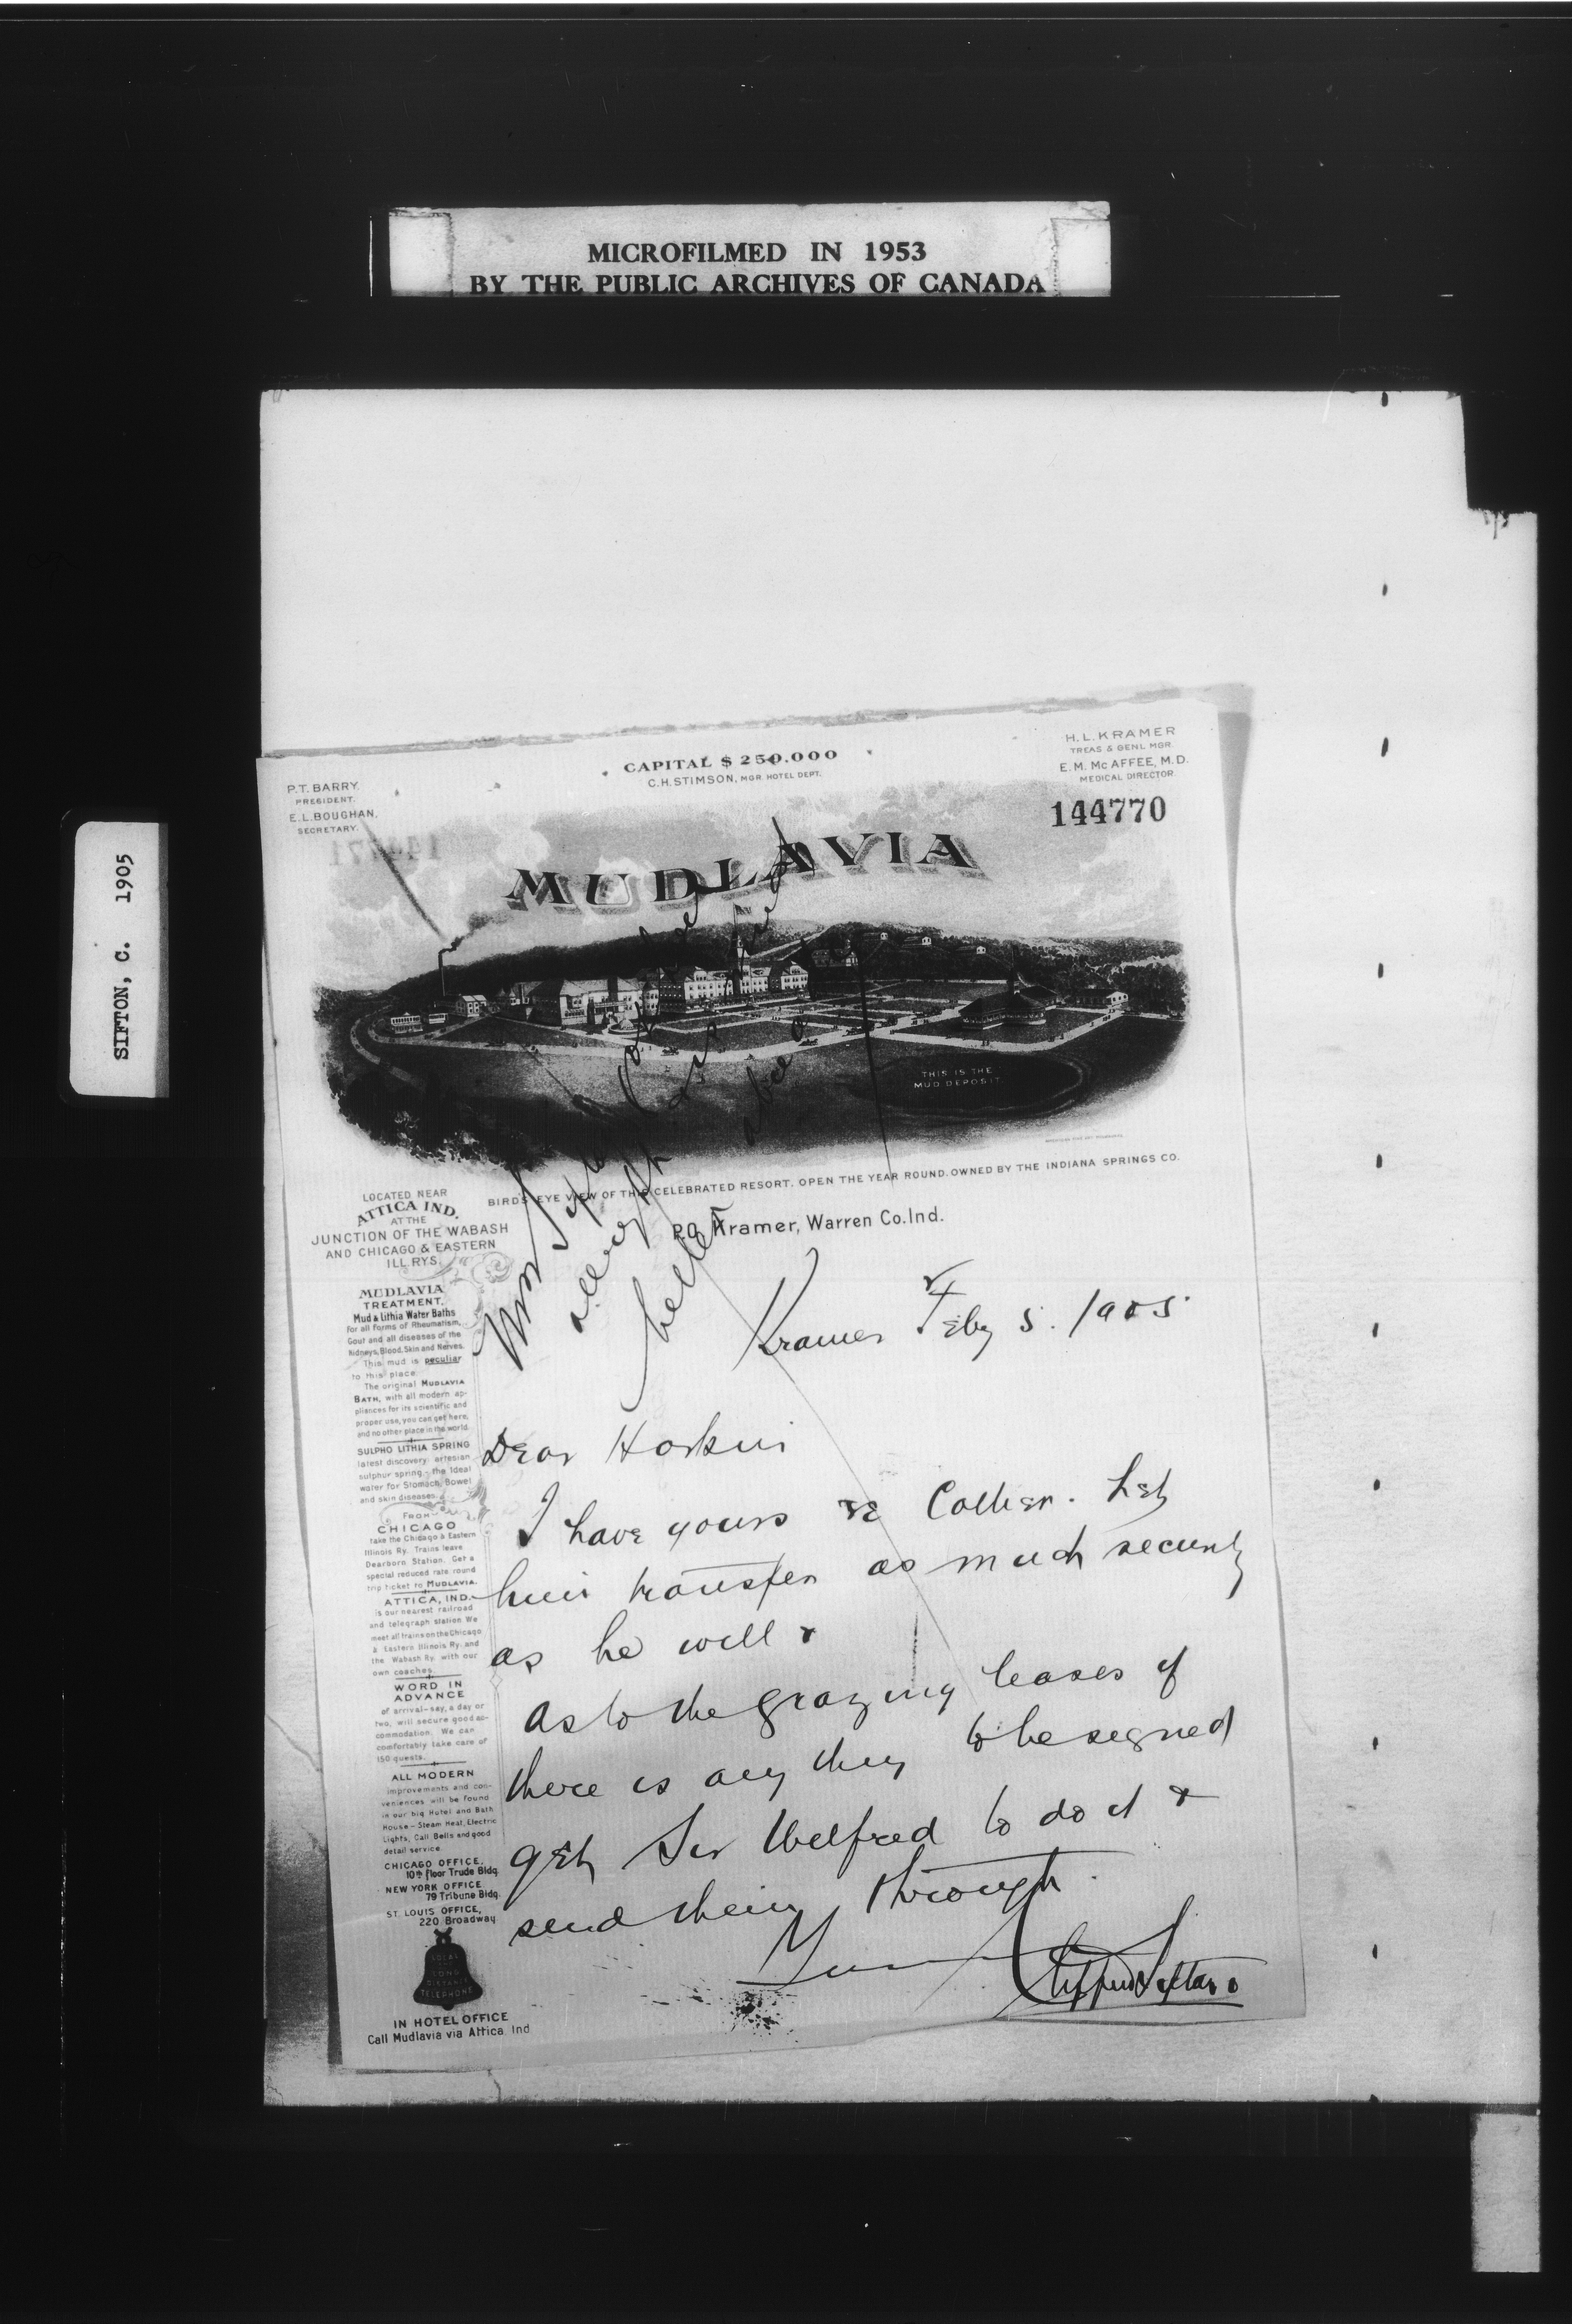 MICROFILMED IN 1953
BY THE PUBLIC ARCHIVES OF CANADA
SIFTON, C. 1905
P.T. BARRY,
PRESIDENT.
E.L. BOUGHAN,
SECRETARY.
CAPITAL $ 250.000
C.H. STIMSON, MGR. HOTEL DEPT.
H.L. KRAMER
TREAS & GENL MGR.
E.M. Mc AFFEE, M.D.
MEDICAL DIRECTOR
144770
MUDLAVIA
THIS IS THE
MUD DEPOSIT.
BIRD'S EYE VIEW OF THIS CELEBRATED RESORT. OPEN THE YEAR ROUND. OWNED BY THE INDIANA SPRINGS CO.
P.O. Kramer, Warren Co. Ind.
LOCATED NEAR
ATTICA IND.
AT THE
JUNCTION OF THE WABASH
AND CHICAGO & EASTERN
ILL. RYS.
MUDLAVIA
TREATMENT.
Mud & Lithia Water Baths
for all forms of Rheumatism,
Gout and all diseases of the
Kidneys, Blood, Skin and Nerves.
This mud is peculiar
to this place.
The original MUDLAVIA
BATH, with all modern ap-
pliances for its scientific and
proper use, you can get here,
and no other place in the world.
SULPHO LITHIA SPRING
latest discovery artesian
sulphur spring,- the ideal
water for Stomach, Bowel
and skin diseases.
FROM
CHICAGO
take the Chicago & Eastern
Illinois Ry. Trains leave
Dearborn Station. Get a
special reduced rate round
trip ticket to MUDLAVIA.
ATTICA, IND.
is our nearest railroad
and telegraph station. We
meet all trains on the Chicago
& Eastern Illinois Ry. and
the Wabash Ry. with our
own coaches.
WORD IN
ADVANCE
of arrival-say, a day or
two, will secure good ac-
commodation. We can
comfortably take care of
150 guests.
ALL MODERN
improvements and con-
veniences will be found
in our big Hotel and Bath
House-Steam Heat, Electric
Lights, Call Bells and good
detail service.
CHICAGO OFFICE,
10th floor Trude Bldg.
NEW YORK OFFICE
79 Tribune Bldg.
ST. LOUIS OFFICE,
220 Broadway
LOCAL
AND
LONG
DISTANCE
TELEPHONE
IN HOTEL OFFICE
Call Mudlavia via Attica Ind
Kramer Feby 5. 1905
Dear Hoskin
I have yours re Collier. Let
him transfer as much security
as he will &
as to the grazing leases if
there is any thing to be signed
get Sir Wilfred to do it &
send them through.
Yours
Clifford Sifton